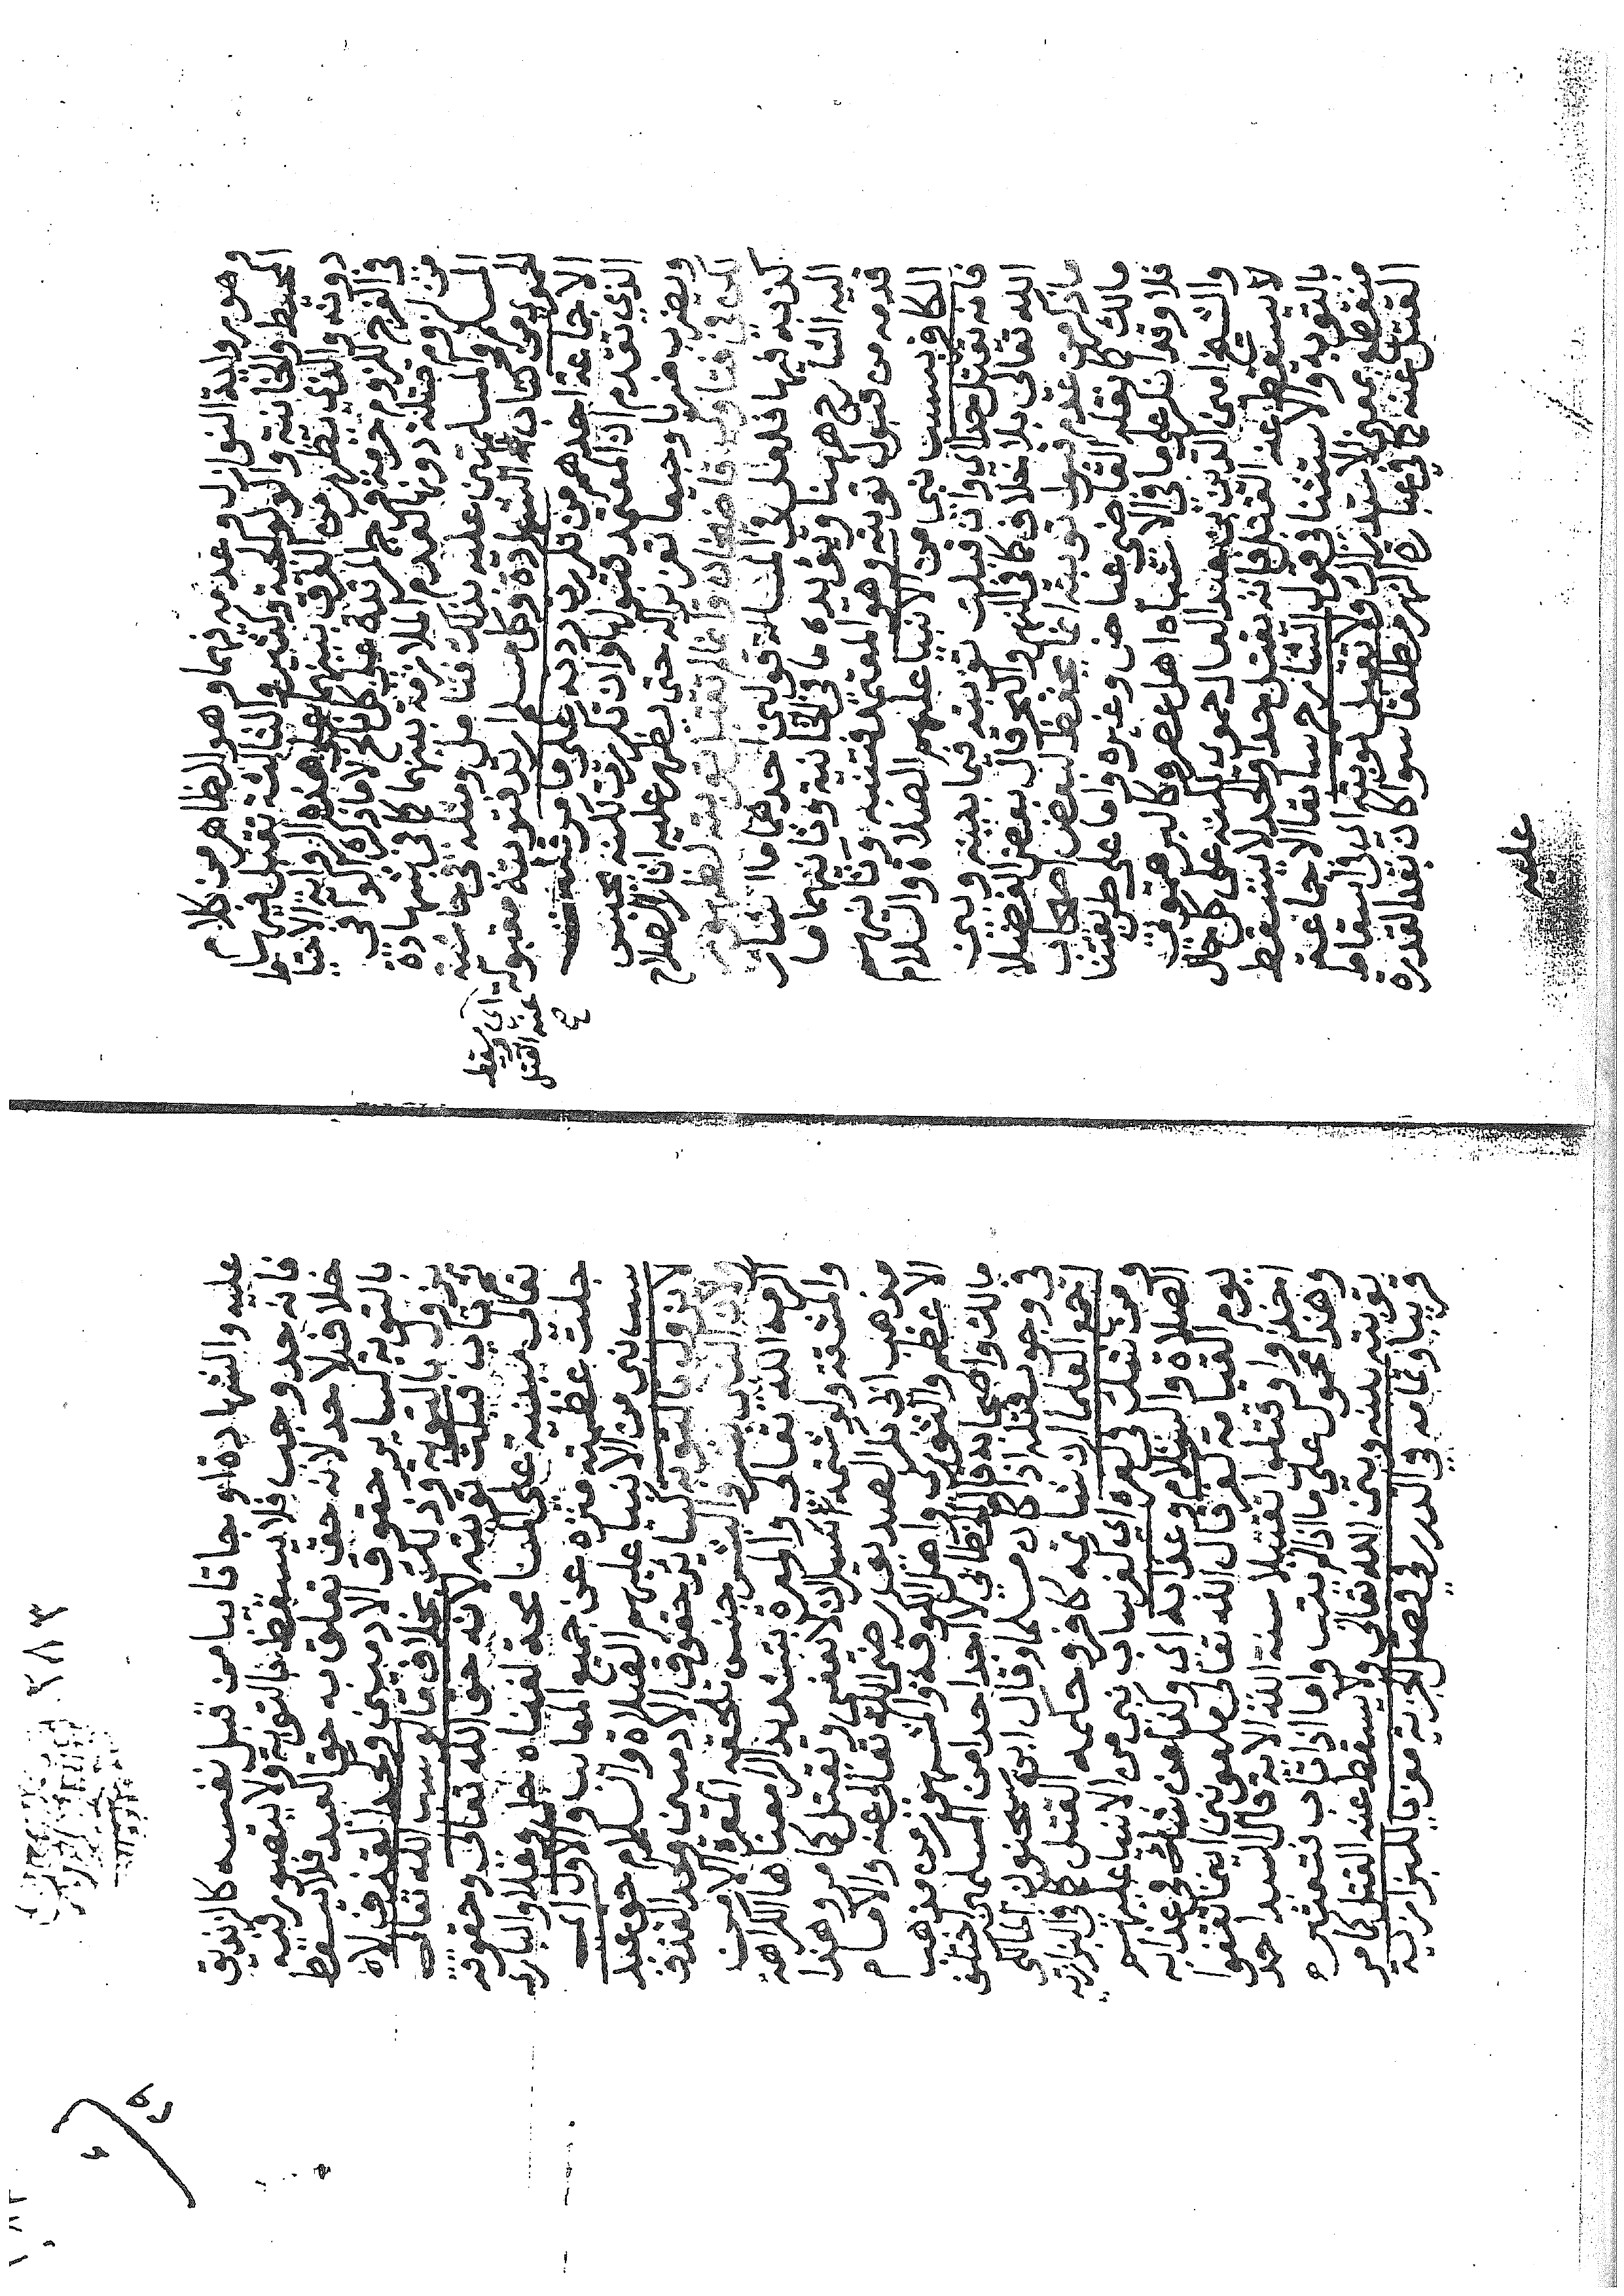 وهو رواية النوازل وعدمه فيهما وهو الظاهر من كلام
المحيط والخانية والولوالجية وكثير والثالثة تقبل فيها
دونه والذي يظهر من الفرق بينهما على هذه الرواية الاحتياط
في الفرج للزوم حرمة فرج المرتدة على كل ناكح لا ما ذكره الوافي
من لزوم قتله دونها لعدم الملازمة بينهما كما في شهادة
السامع والمسلمين عليه بذلك فتأمل ومثله في حاشية
الحموي من كتاب الشهادة وكل مسلم ارتد فتوبته مقبولة
الا جماعة احدهم من تكررت ردته على ما مر
الذي تقدم ان المعتمد قبولها وان تكررت لكنه يحبس
ويضرب ضربا وجيعا تعزيرا له حتى يظهر عليه اثار الصلاح
كذبه فيها فلعل في المسالة قولين احدهما ما اشار
اليه الشارح ههنا ويؤيده ما في الخانية وثانيهما ما
قدمه من قبول توبته وهو المعتمد فتنبه وثانيهم
الكافر بسب نبي من الانبياء عليهم الصلاة والسلام
فانه يقتل حدا اي وان قبلت توبته فيما بينه وبين
الله تعالى بلا خلاف كما في النهر والبحر قال بعض الفضلا
ما ذكر من عدم قبول توبته انما يحفظ لبعض اصحاب
مالك كما نقله القاضي عياض وغيره واما على طريقتنا
فلا وقد انكر على ما في الاشباه اهل عصره كالبرهمتوشي
والشيخ امين الدين بن عبد العال حموي لكنه على كل حال
لا يسقط عنه القتل فانه يقتل حدا والحد لا يسقط
بالتوبة والاستثنا في قول الشارح سابقا الا جماعة
منقطع بمعنى الاستدراك ولا تقبل توبته اي في اسقاط
القتل عنه كما في عبارة النهر مطلقا سوا كان بعد القدرة
اي ويسقط
عنه القتل
صح
عليه
٣٨٣
عليه والشهادة او جا تائبا من قبل نفسه كالزنديق
فانه حد وجب فلا يسقط بالتوبة ولا يتصور فيه
خلاف لاحد لانه حق تعلق به حق العبد فلا يسقط
بالتوبة كسائر حقوق الادميين وكحد القذف لا
يزول بالتوبة وذلك بخلاف ما لو سب الله تعالى
ثم تاب قبلت توبته لانه حق الله تعالى وحقوقه
تعالى مبنية على المسامحة لغناه جل وعلا والباري
جلت عظمته منزه عن جميع المعايب والاول اي
سب نبي من الانبياء عليهم الصلاة والسلام حق عبد
لا يزول بالتوبة كسائر حقوق الادميين وكحد القذف
ولان النبي بشر والبشر جنس تلحقه المعرة الا من
اكرمه الله تعالى والمعرة بتشديد الرا معناها الكراهة
والمشقة ولو شتمه سكران لا يعفى ويقتل كما مر وهذا
مذهب ابي بكر الصديق رضي الله تعالى عنه والامام
الاعظم والثوري واهل الكوفة والمشهور من مذهب
مالك واصحابه قال الخطابي لا اعلم احدا من المسلمين اختلف
في وجوب قتله اذا كان مسلما وقال ابن سحنون المالكي
اجمع العلما ان شاتمه كافر وحكمه القتل كما في البزازية
ومن شك في كفره اي كفر ساب نبي من الانبياء عليهم
الصلاة والسلام وعذابه اي وكذا من شك في عذابه
يوم القيامة كفر قال الله تعالى ملعونين اينما ثقفوا
اخذوا وقتلوا تقتيلا سنة الله الاية قال السيد احمد
وهذا محمول على ما اذا لم يتب واما اذا تاب فتعتبر
توبته بينه وبين الله تعالى ولا يسقط عنه القتل كما مر
قريبا وتمامه في الدرر في فصل الجزية معزيا للبزازية